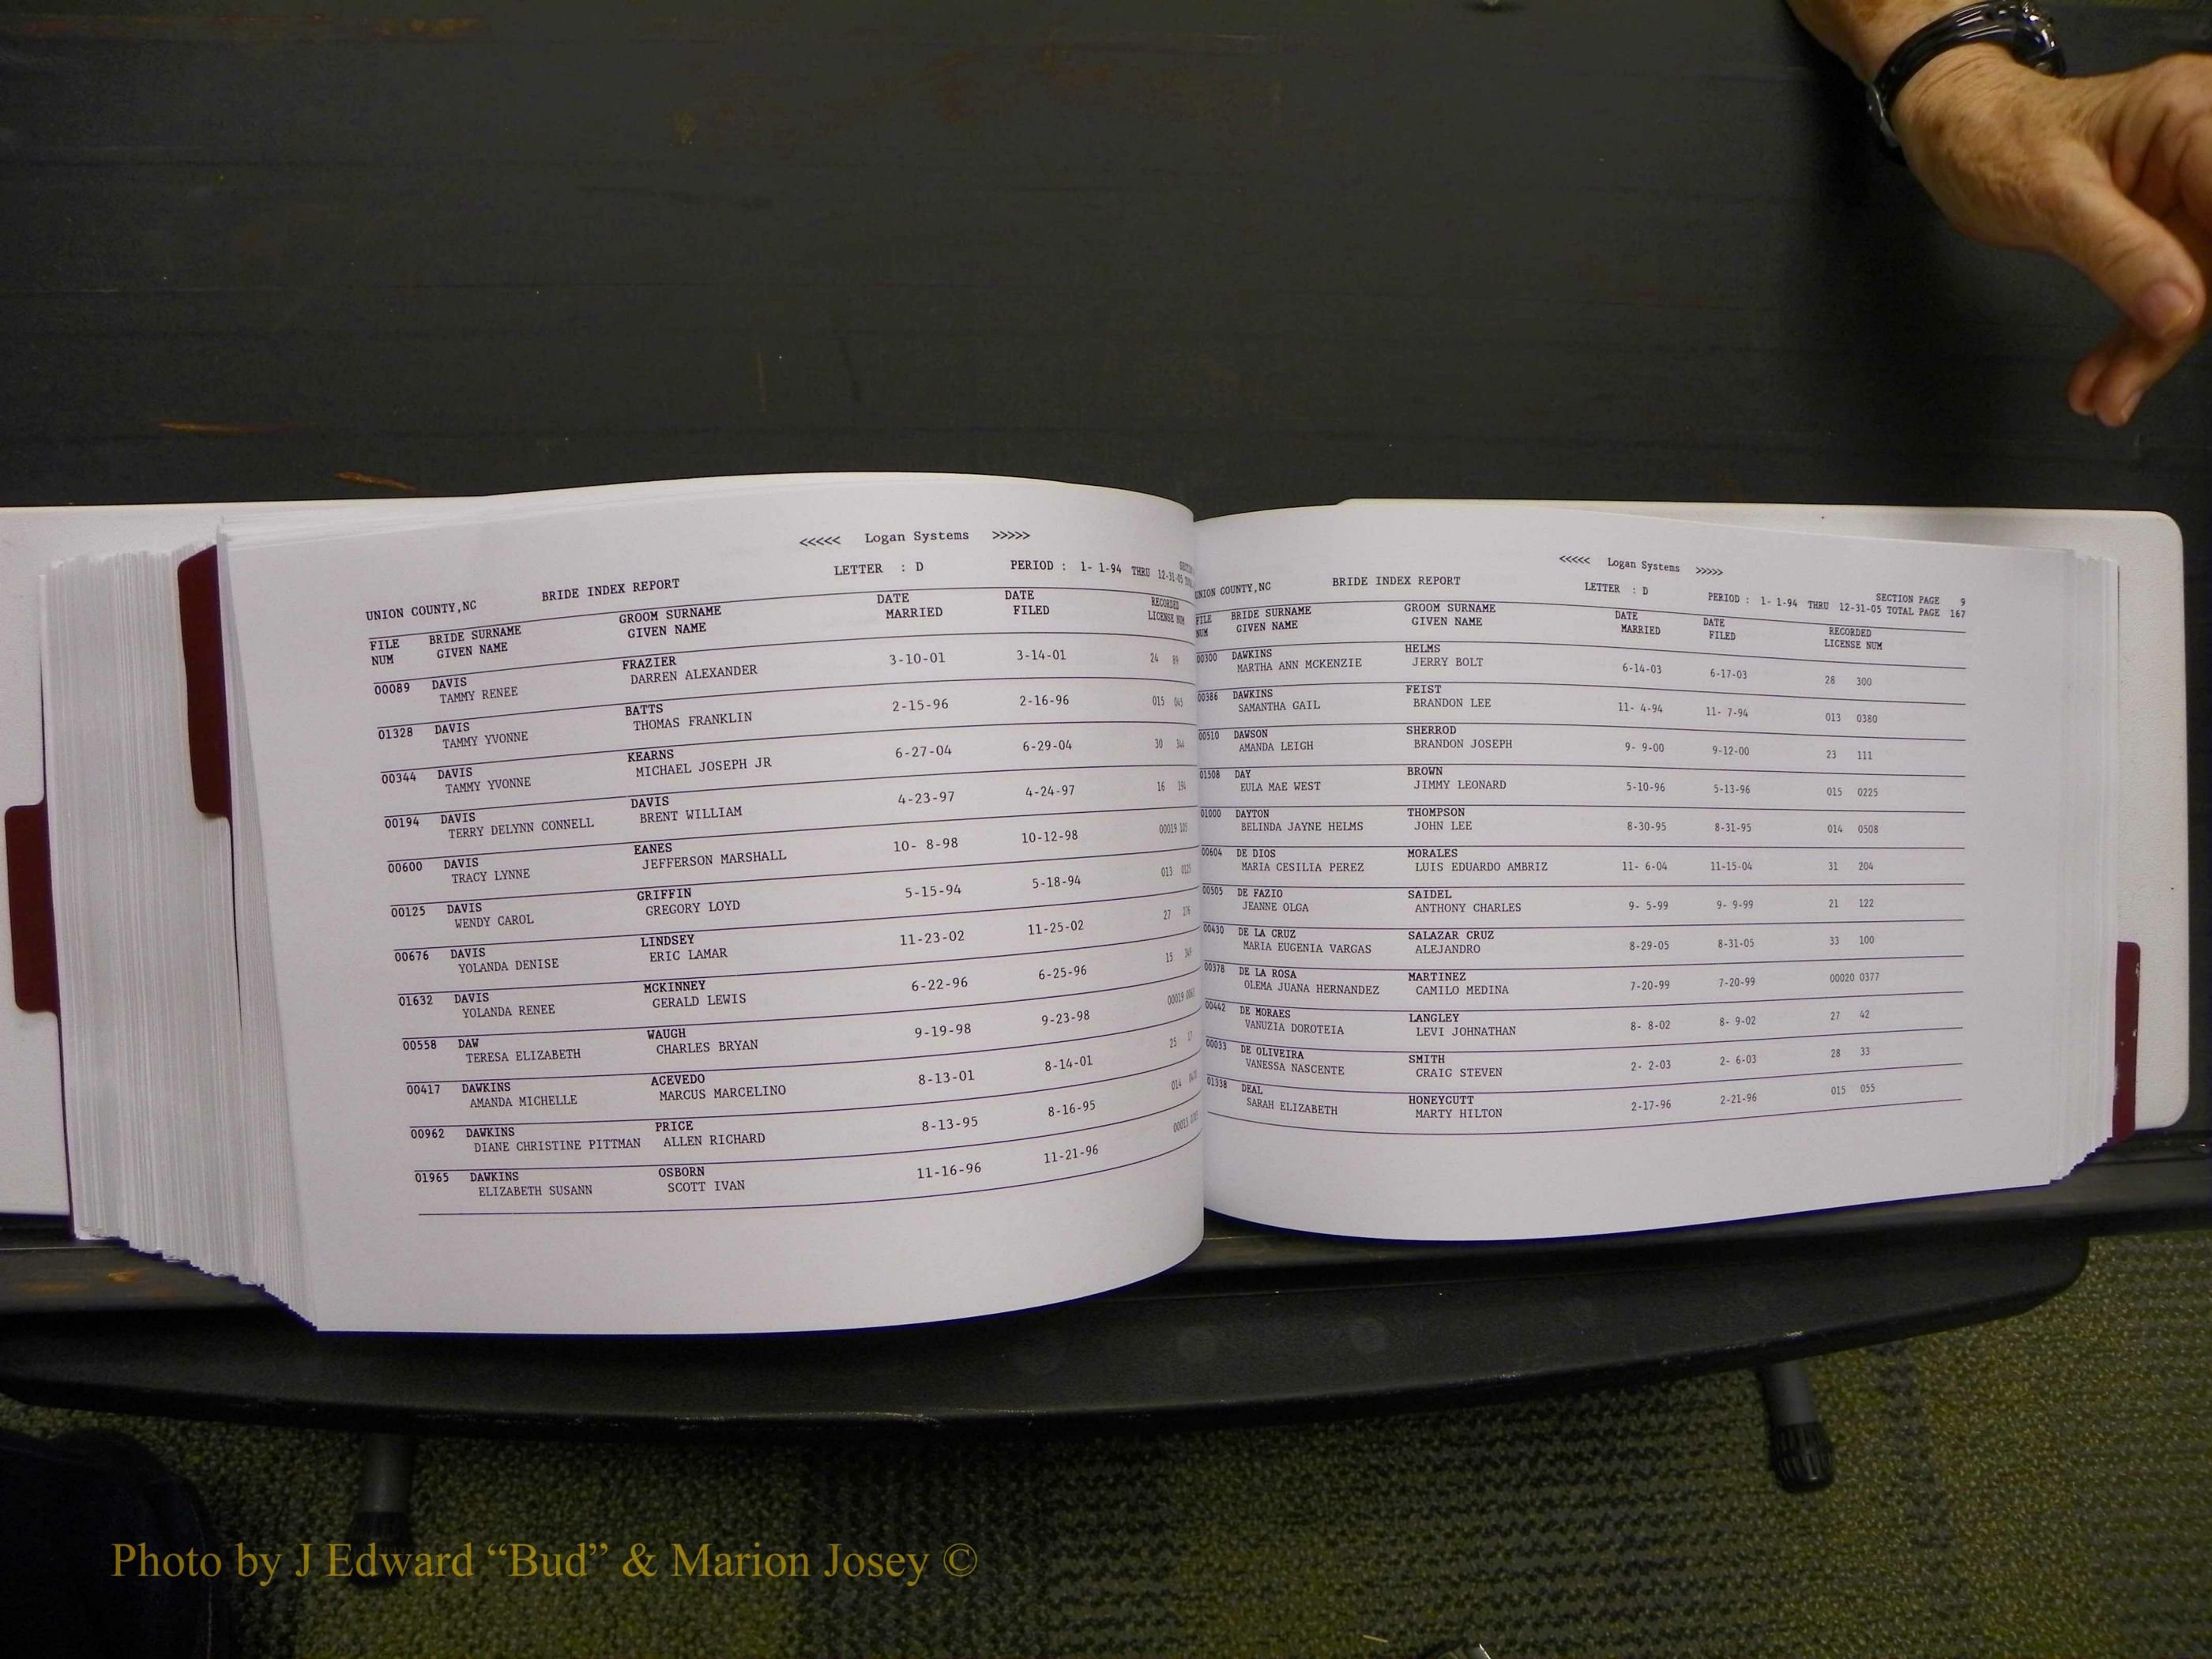 <<<<< Logan Systems >>>>>
UNION COUNTY,NC BRIDE INDEX REPORT LETTER : D PERIOD : 1- 1-94 THRU 12-31-05
FILE BRIDE SURNAME GROOM SURNAME DATE DATE RECORDED
NUM GIVEN NAME GIVEN NAME MARRIED FILED LICENSE NUM
00089 DAVIS FRAZIER 3-10-01 3-14-01 24 89
TAMMY RENEE DARREN ALEXANDER
01328 DAVIS BATTS 2-15-96 2-16-96 015
TAMMY YVONNE THOMAS FRANKLIN
00344 DAVIS KEARNS 6-27-04 6-29-04 30 344
TAMMY YVONNE MICHAEL JOSEPH JR
00194 DAVIS DAVIS 4-23-97 4-24-97 16 194
TERRY DELYNN CONNELL BRENT WILLIAM
00600 DAVIS EANES 10- 8-98 10-12-98 00019
TRACY LYNNE JEFFERSON MARSHALL
00125 DAVIS GRIFFIN 5-15-94 5-18-94 013
WENDY CAROL GREGORY LOYD
00676 DAVIS LINDSEY 11-23-02 11-25-02 27
YOLANDA DENISE ERIC LAMAR
01632 DAVIS MCKINNEY 6-22-96 6-25-96 15
YOLANDA RENEE GERALD LEWIS
00558 DAW WAUGH 9-19-98 9-23-98 00019
TERESA ELIZABETH CHARLES BRYAN
00417 DAWKINS ACEVEDO 8-13-01 8-14-01 25
AMANDA MICHELLE MARCUS MARCELINO
00962 DAWKINS PRICE 8-13-95 8-16-95 014
DIANE CHRISTINE PITTMAN ALLEN RICHARD
01965 DAWKINS OSBORN 11-16-96 11-21-96
ELIZABETH SUSANN SCOTT IVAN
<<<<< Logan Systems >>>>>
SECTION PAGE 9
UNION COUNTY,NC BRIDE INDEX REPORT LETTER : D PERIOD : 1- 1-94 THRU 12-31-05 TOTAL PAGE 167
FILE BRIDE SURNAME GROOM SURNAME DATE DATE RECORDED
NUM GIVEN NAME GIVEN NAME MARRIED FILED LICENSE NUM
00300 DAWKINS HELMS 6-14-03 6-17-03 28 300
MARTHA ANN MCKENZIE JERRY BOLT
00386 DAWKINS FEIST 11- 4-94 11- 7-94 013 0380
SAMANTHA GAIL BRANDON LEE
00510 DAWSON SHERROD 9- 9-00 9-12-00 23 111
AMANDA LEIGH BRANDON JOSEPH
01508 DAY BROWN 5-10-96 5-13-96 015 0225
EULA MAE WEST JIMMY LEONARD
01000 DAYTON THOMPSON 8-30-95 8-31-95 014 0508
BELINDA JAYNE HELMS JOHN LEE
00604 DE DIOS MORALES 11- 6-04 11-15-04 31 204
MARIA CESILIA PEREZ LUIS EDUARDO AMBRIZ
00505 DE FAZIO SAIDEL 9- 5-99 9- 9-99 21 122
JEANNE OLGA ANTHONY CHARLES
00430 DE LA CRUZ SALAZAR CRUZ 8-29-05 8-31-05 33 100
MARIA EUGENIA VARGAS ALEJANDRO
00378 DE LA ROSA MARTINEZ 7-20-99 7-20-99 00020 0377
OLEMA JUANA HERNANDEZ CAMILO MEDINA
00442 DE MORAES LANGLEY 8- 8-02 8- 9-02 27 42
VANUZIA DOROTEIA LEVI JOHNATHAN
00033 DE OLIVEIRA SMITH 2- 2-03 2- 6-03 28 33
VANESSA NASCENTE CRAIG STEVEN
01338 DEAL HONEYCUTT 2-17-96 2-21-96 015 055
SARAH ELIZABETH MARTY HILTON
Photo by J Edward “Bud” & Marion Josey ©